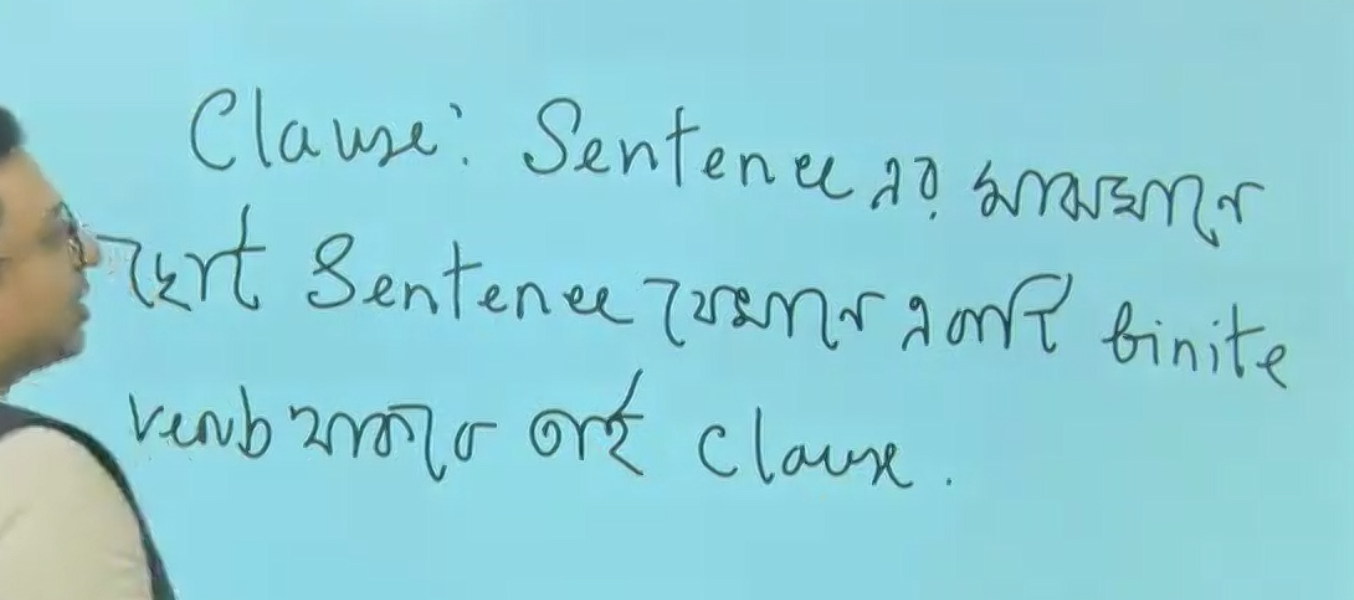 Clause: Sentence এর মাঝখানে
ছোট Sentence যেখানে একটি finite
verb থাকবে তাই Clause.